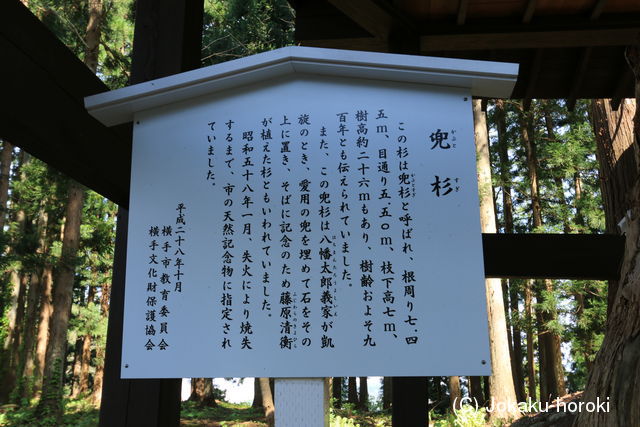 兜杉
かぶと すぎ
この杉は兜杉と呼ばれ、根周り七.四
かぶとすぎ
五m、目通り五.五〇m、枝下高七m、
樹高約二十六mもあり、樹齢およそ九
百年とも伝えられていました。
また、この兜杉は八幡太郎義家が凱
旋のとき、愛用の兜を埋めて石をその
上に置き、そばに記念のため藤原清衡
ふじわらのきよひら
が植えた杉ともいわれていました。
昭和五十八年一月、失火により焼失
するまで、市の天然記念物に指定され
ていました。
平成二十八年十月
横手市教育委員会
横手文化財保護協会
(C) Jokaku-horoki